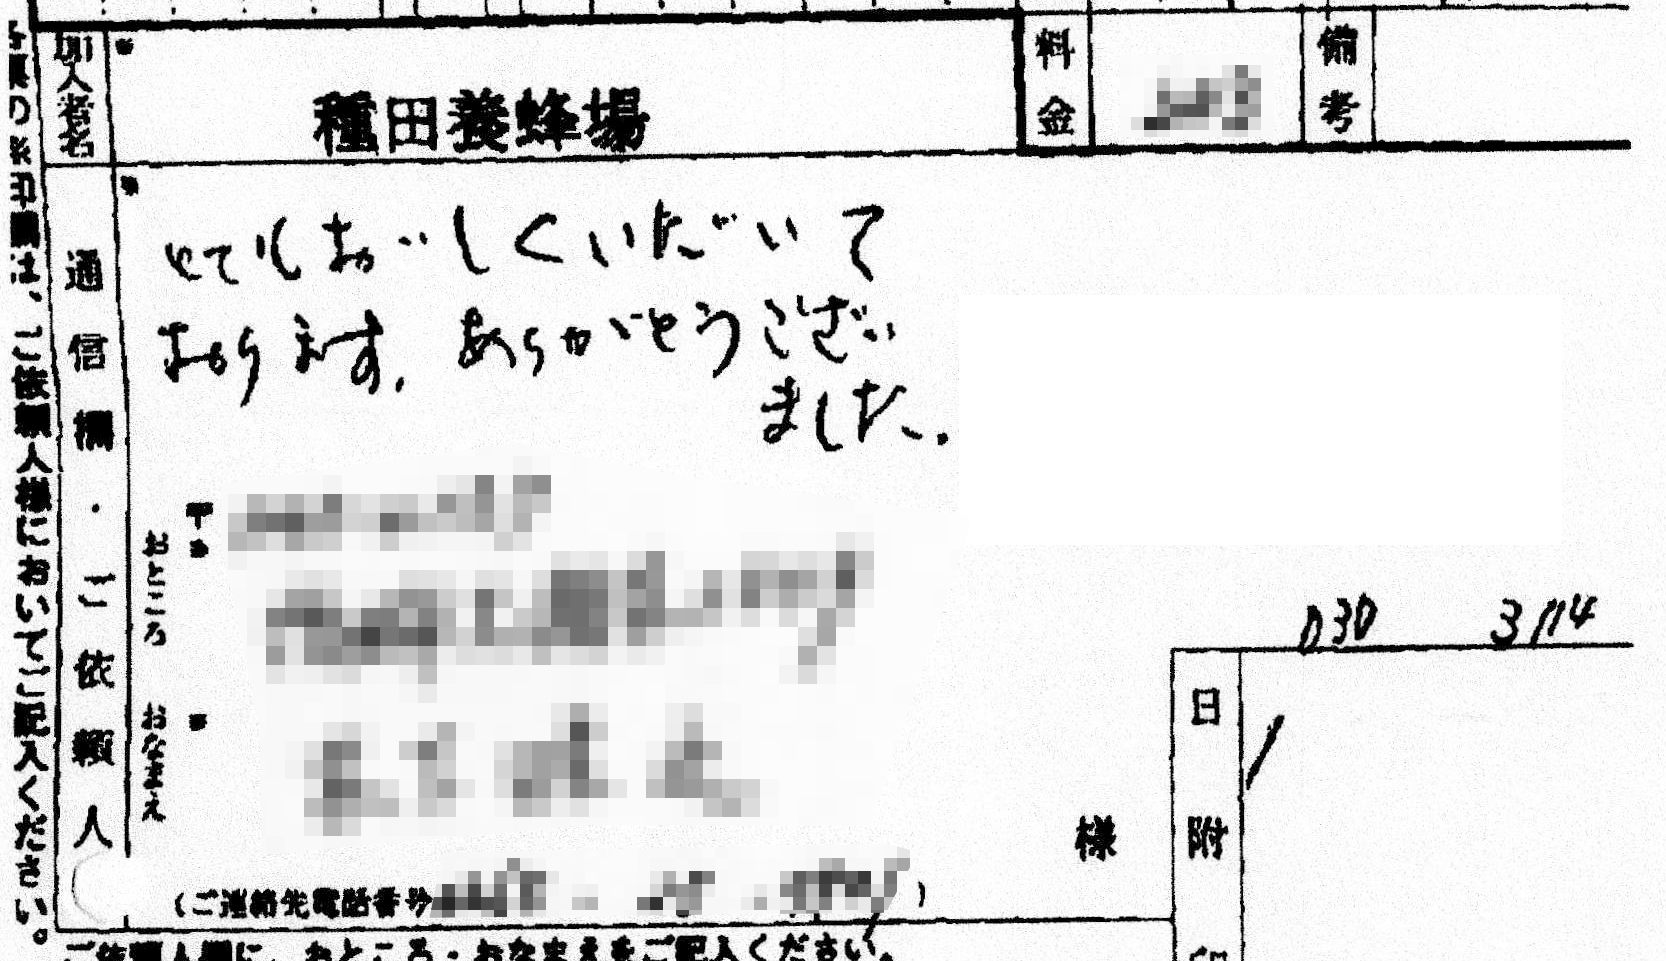 加入者名
種田養蜂場
料金
備考
通信欄・ご依頼人
とてもおいしくいただいて
おります。ありがとうござい
ました。
〒
おところ
おなまえ
様
(ご連絡先電話番号
)
030 3114
日附
は、ご依頼人様においてご記入ください。
ご依頼人欄に、おところ・おなまえをご記入ください。